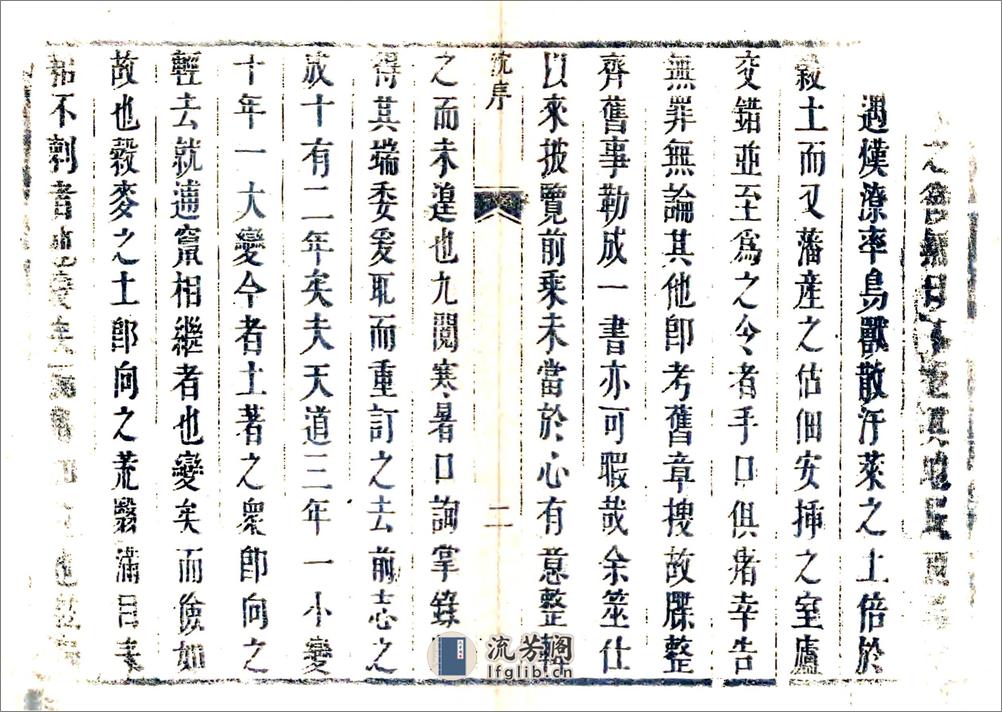 遇熯潦率鳥獸散汙萊之土倍於
穀土而又藩產之估佃安揷之室廬
交錯並至爲之令者手口俱堵幸告
無罪無論其他卽考舊章搜故牒整
齊舊事勒成一書亦可暇哉余筮仕
以來披覽前乘未當於心有意整輯
序
二
之而未遑也九閱寒暑口詢掌錄
得其端委爰取而重訂之去前志之
成十有二年矣夫天道三年一小變
十年一大變今者土著之衆卽向之
輕去就逋竄相繼者也變矣而儉如
故也穀麥之土卽向之荒翳滿目耒
耜不刺者也變矣
流芳阁
lfglib.cn